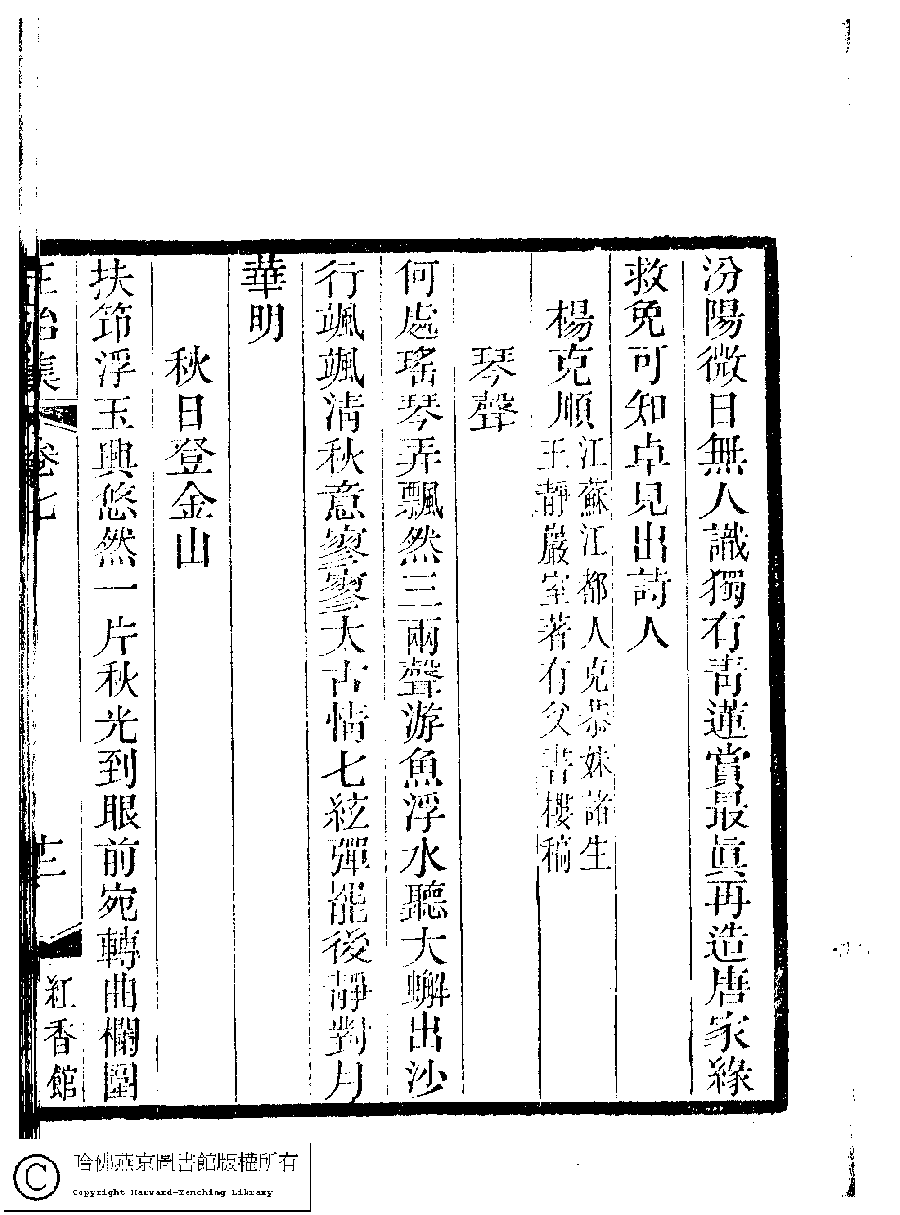 汾陽微日無人識獨有青蓮賞最眞再造唐家緣
救免可知卓見出詩人
楊克順江蘇江都人克恭妹諸生
王靜嚴室著有父書樓稿
琴聲
何處瑤琴弄飄然三兩聲游魚浮水聽大蠏出沙
行颯颯淸秋意寥寥太古情七絃彈罷後靜對月
華明
秋日登金山
扶筇浮玉興悠然一片秋光到眼前宛轉曲欄圍
正始集
卷七
十二
紅香館
哈佛燕京圖書館版權所有
Copyright Harvard-Yenching Library